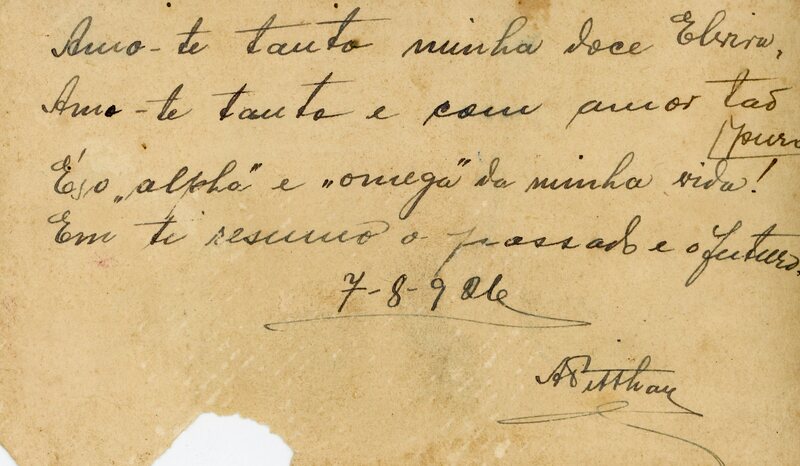 Amo-te tanto minha doce Elvira,
Amo-te tanto e com amor tão
puro
És o „alpha" e „omega" da minha vida!
Em ti resumo o passado e o futuro.
7-8-926